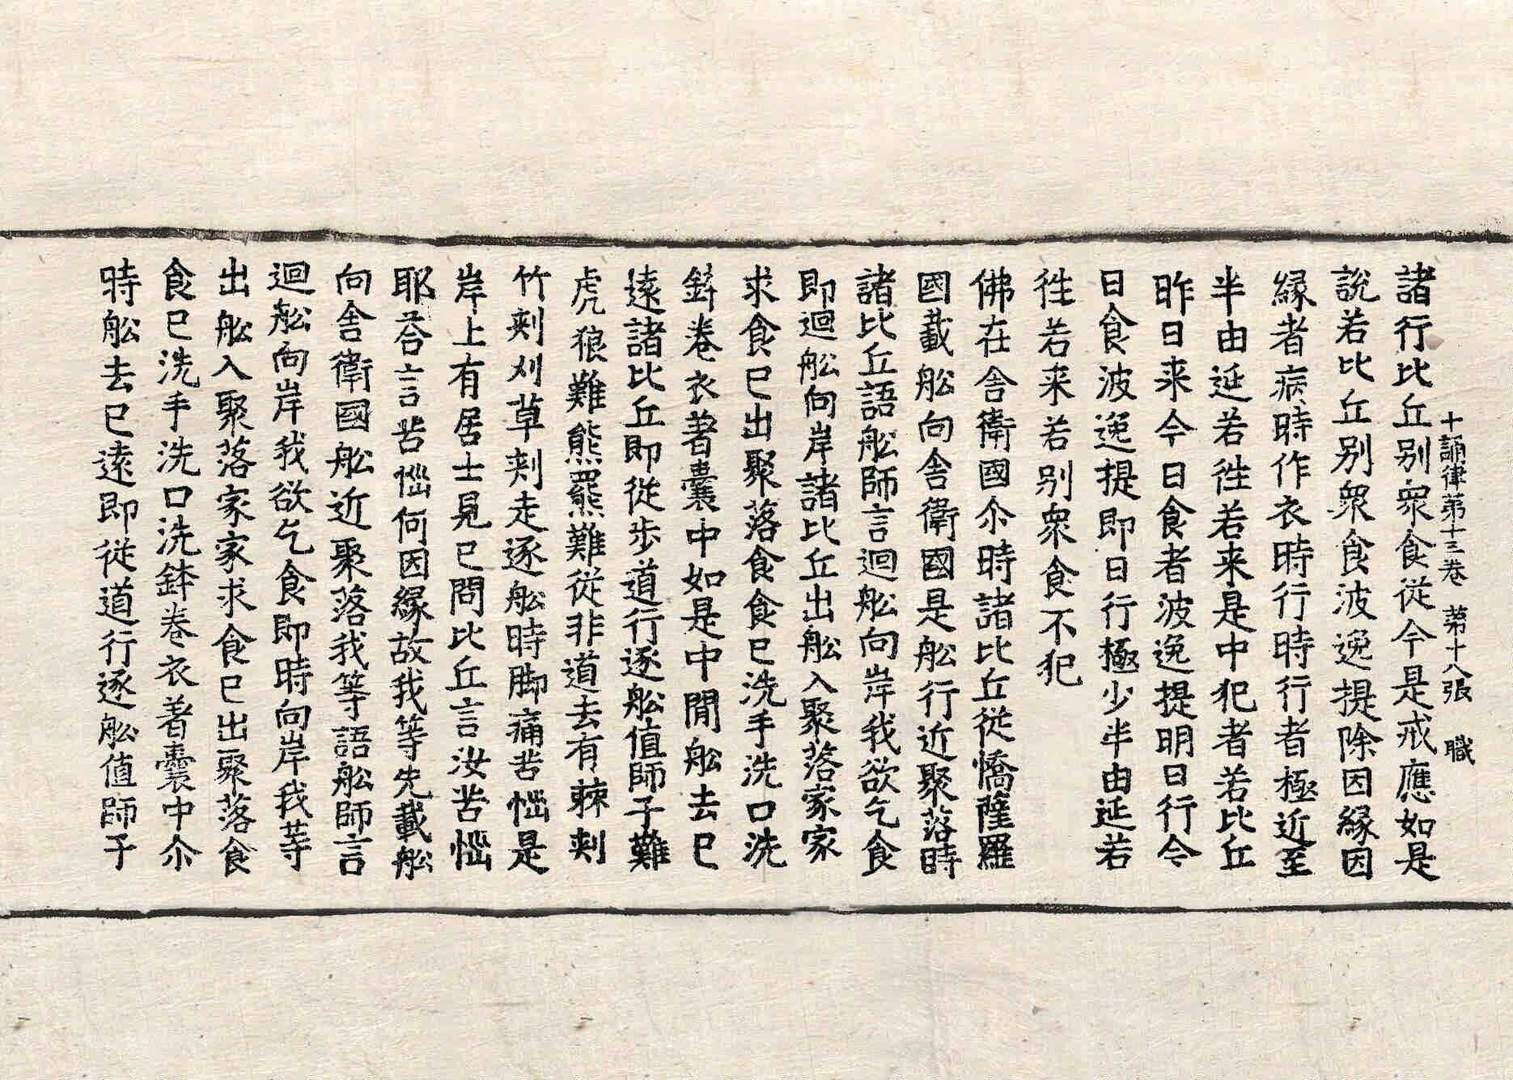 十誦律第十三卷　第十八張　職
諸行比丘別衆食從今是戒應如是
說若比丘別衆食波逸提除因縁因
縁者病時作衣時行時行者極近至
半由延若徃若来是中犯者若比丘
昨日来今日食者波逸提明日行令
日食波逸提即日行極少半由延若
徃若来若别衆食不犯
佛在舎衛國尒時諸比丘従憍薩羅
國載舩向舎衛國是舩行近聚落時
諸比丘語舩師言迴舩向岸我欲乞食
即迴舩向岸諸比丘出舩入聚落家家
求食已出聚落食食已洗手洗口洗
鉢卷衣著囊中如是中間舩去已
遠諸比丘即従步道行逐舩值師子難
虎狼難熊羆難従非道去有棘刾
竹刾刈草刾走逐舩時脚痛苦惱是
岸上有居士見已問比丘言汝苦惱
耶荅言苦惱何因縁故我等先載舩
向舎衛國舩近聚落我等語舩師言
迴舩向岸我欲乞食即時向岸我䓁
出舩入聚落家家求食已出聚落食
食已洗手洗口洗鉢卷衣著囊中尒
時舩去已遠即従道行逐舩值師子